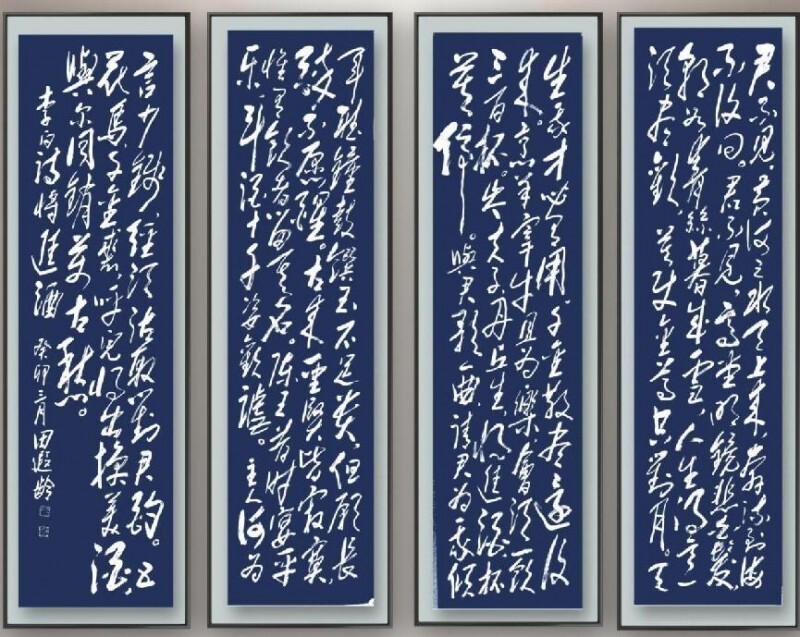 君不見,黃河之水天上來,奔流到海
不復回。君不見,高堂明鏡悲白髮,
朝如青絲暮成雪,人生得意
須盡歡,莫使金尊空對月。天
生我才必有用,千金散盡還復
來。烹羊宰牛且為樂,會須一飲
三百杯。岑夫子丹丘生,將進酒杯
莫停。與君歌一曲,請君為我傾
耳聽鐘鼓饌玉不足貴,但願長
醉不願醒。古來聖賢皆寂寞,
惟有飲者留其名。陳王昔時宴平
樂,斗酒十千恣歡謔。主人何為
言少錢,徑須沽取對君酌。五
花馬千金裘呼兒將出換美酒,
與爾同銷萬古愁。
李白詩將進酒 癸卯三月田遐齡